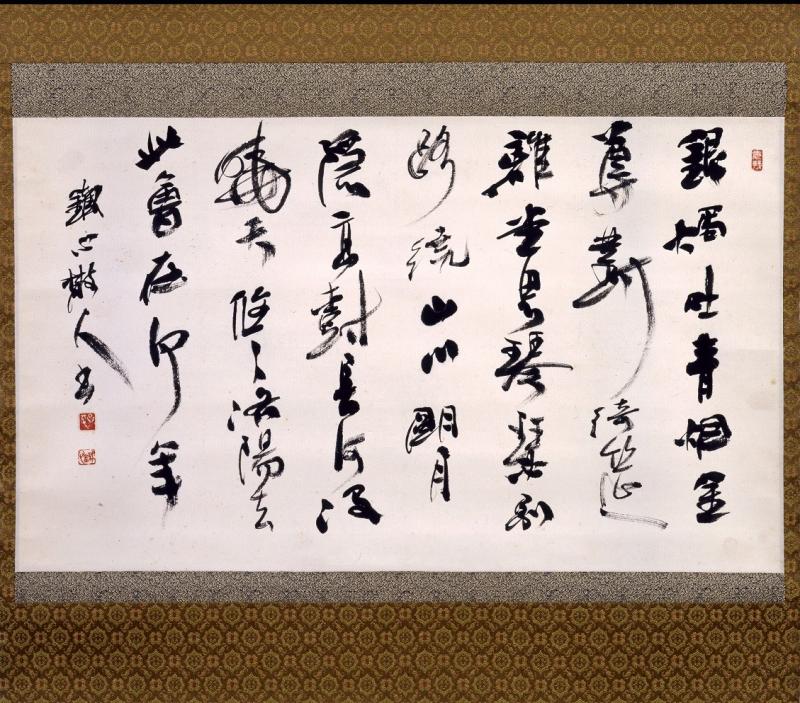 銀燭吐青烟金
尊對綺筵
離堂思琴瑟別
路繞山川明月
隱高樹長河没
曉天悠々洛陽去
此會在何年
人書